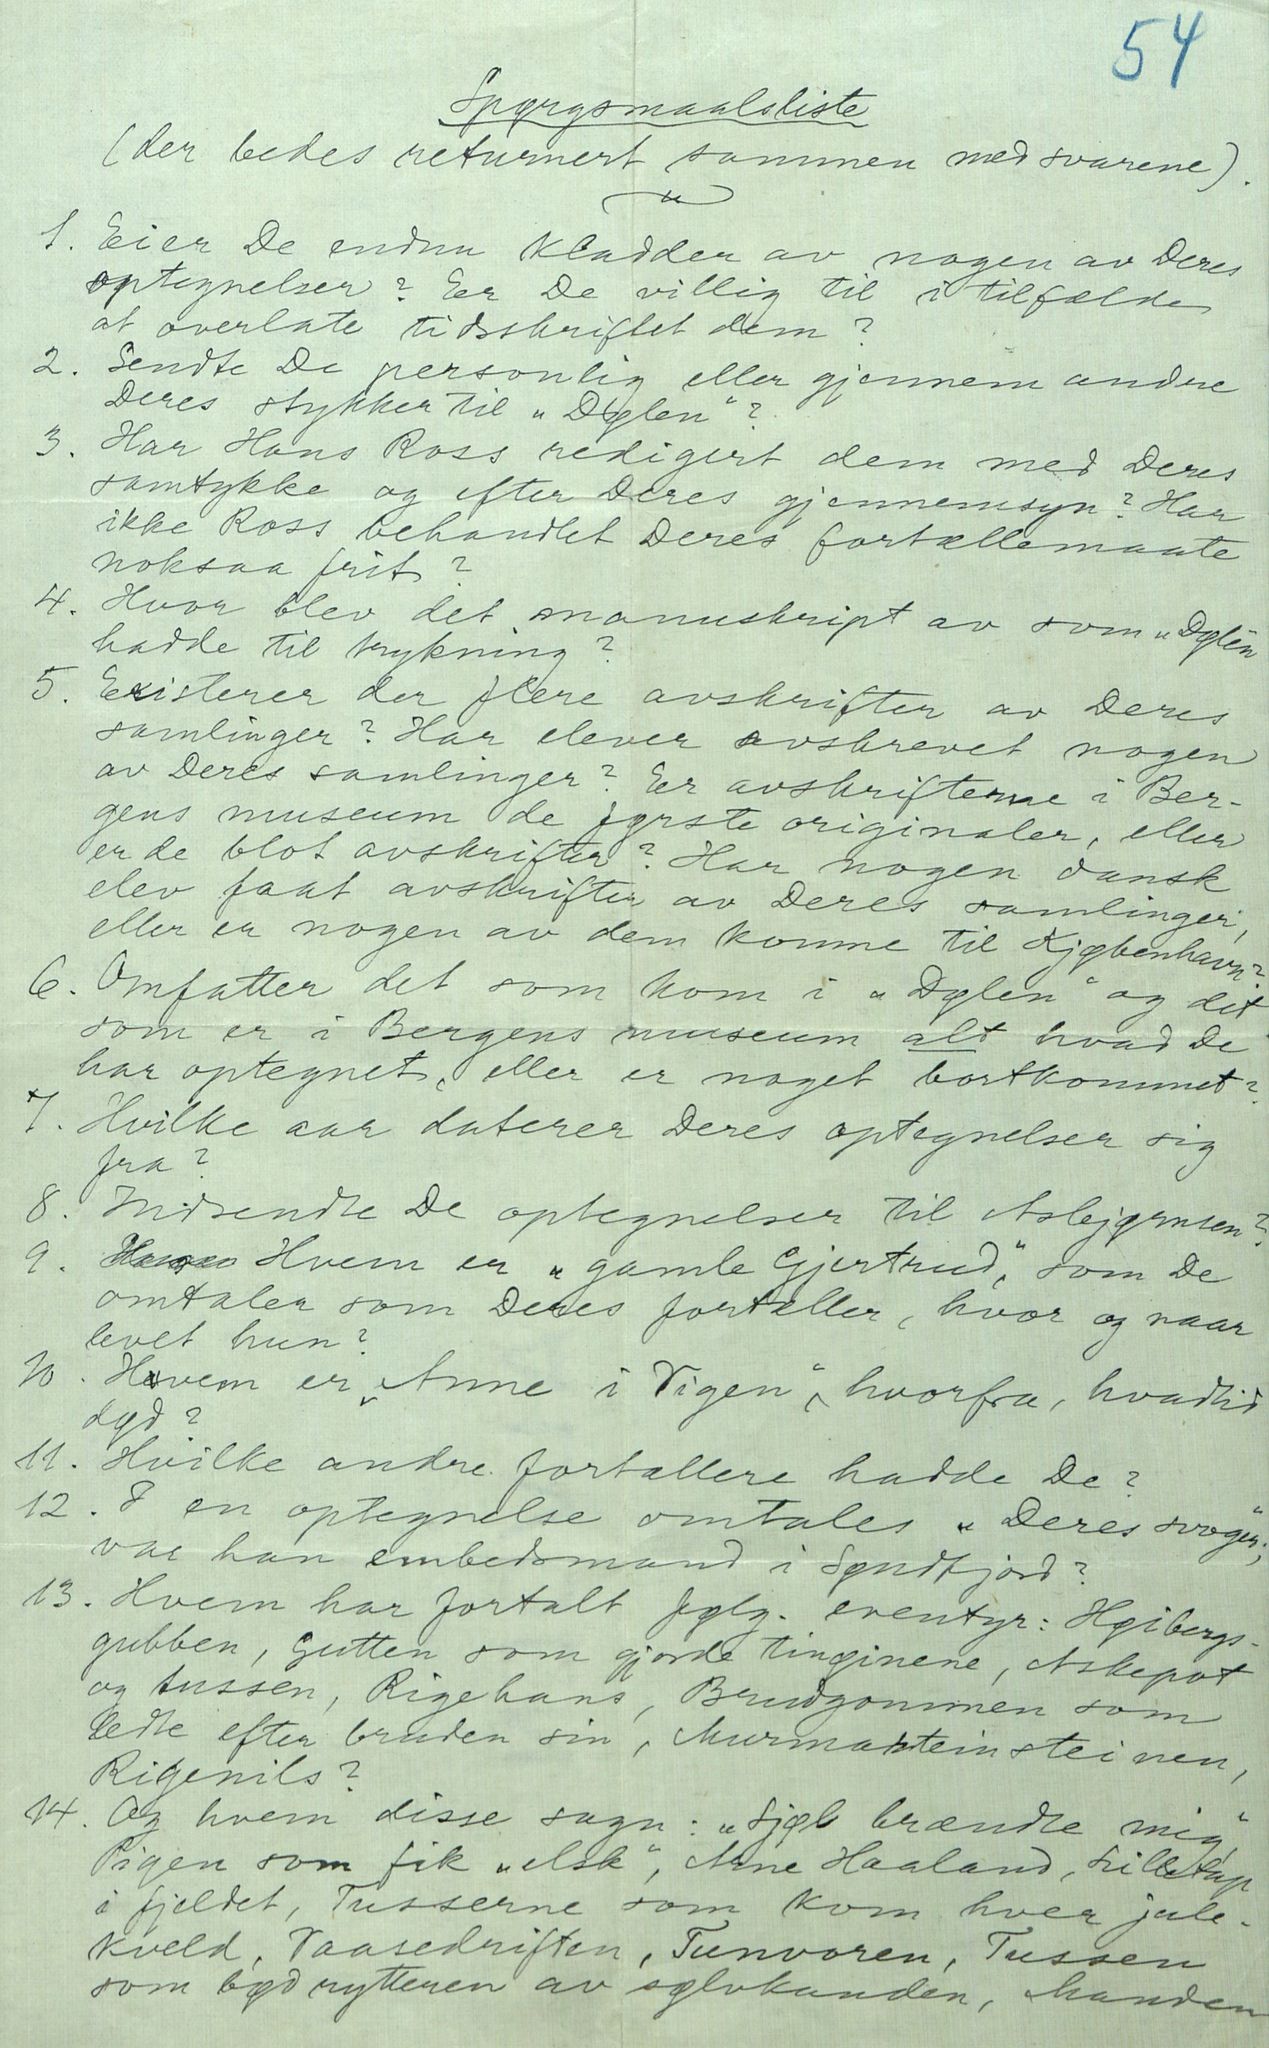 54
Spørgsmaalsliste
(der bedes returnert sammen med svarene).
1. Eier De endnu kladder av nogen av Deres
optegnelser? Er De villig til i tilfælde
at overlate tidsskriftet dem?
2. Sendte De personlig eller gjennem andre
Deres stykker til „Dølen"?
3. Har Hans Ross redigert dem med Deres
samtykke og efter Deres gjennemsyn? Har
ikke Ross behandlet Deres fortællemaate
noksaa frit?
4. Hvor blev det manuskript av som „Dølen
hadde til trykning?
5. Existerer der flere avskrifter av Deres
samlinger? Har elever avskrevet nogen
av Deres samlinger? Er avskrifterne i Ber-
gens museum de første originaler, eller
er de blot avskrifter? Har nogen dansk
elev faat avskrifter av Deres samlinger,
eller er nogen av dem komne til Kjøbenhavn?
6. Omfatter det som kom i „Dølen" og det
som er i Bergens museum alt hvad De
har optegnet, eller er noget bortkommet?
7. Hvilke aar daterer Deres optegnelser sig
fra?
8. Indsendte De optegnelser til Asbjørnsen?
9. Hvem er „gamle Gjertrud", som De
omtaler som Deres fortæller, hvor og naar
levet hun?
10. Hvem er „Anne i Vigen", hvorfra, hvadtid
død?
11. Hvilke andre fortællere hadde De?
12. I en optegnelse omtales „Deres svoger";
var han embedsmand i Søndfjord?
13. Hvem har fortalt følg. eventyr: Høibergs-
gubben, Gutten som gjorde tinginene, Askepot
og tussen, Rigehans, Brudgommen som
ledte efter bruden sin, Murmasteinsteinen,
Rigenils?
14. Og hvem disse sagn: „Sjøl brændte mig",
Pigen som fik „elsk", Arne Haaland, Lilletap
i fjeldet, Tusserne som kom hver jule-
kveld, Vaasedriften, Tunvoren, Tussen
som bød rytteren av sølvkanden, Manden